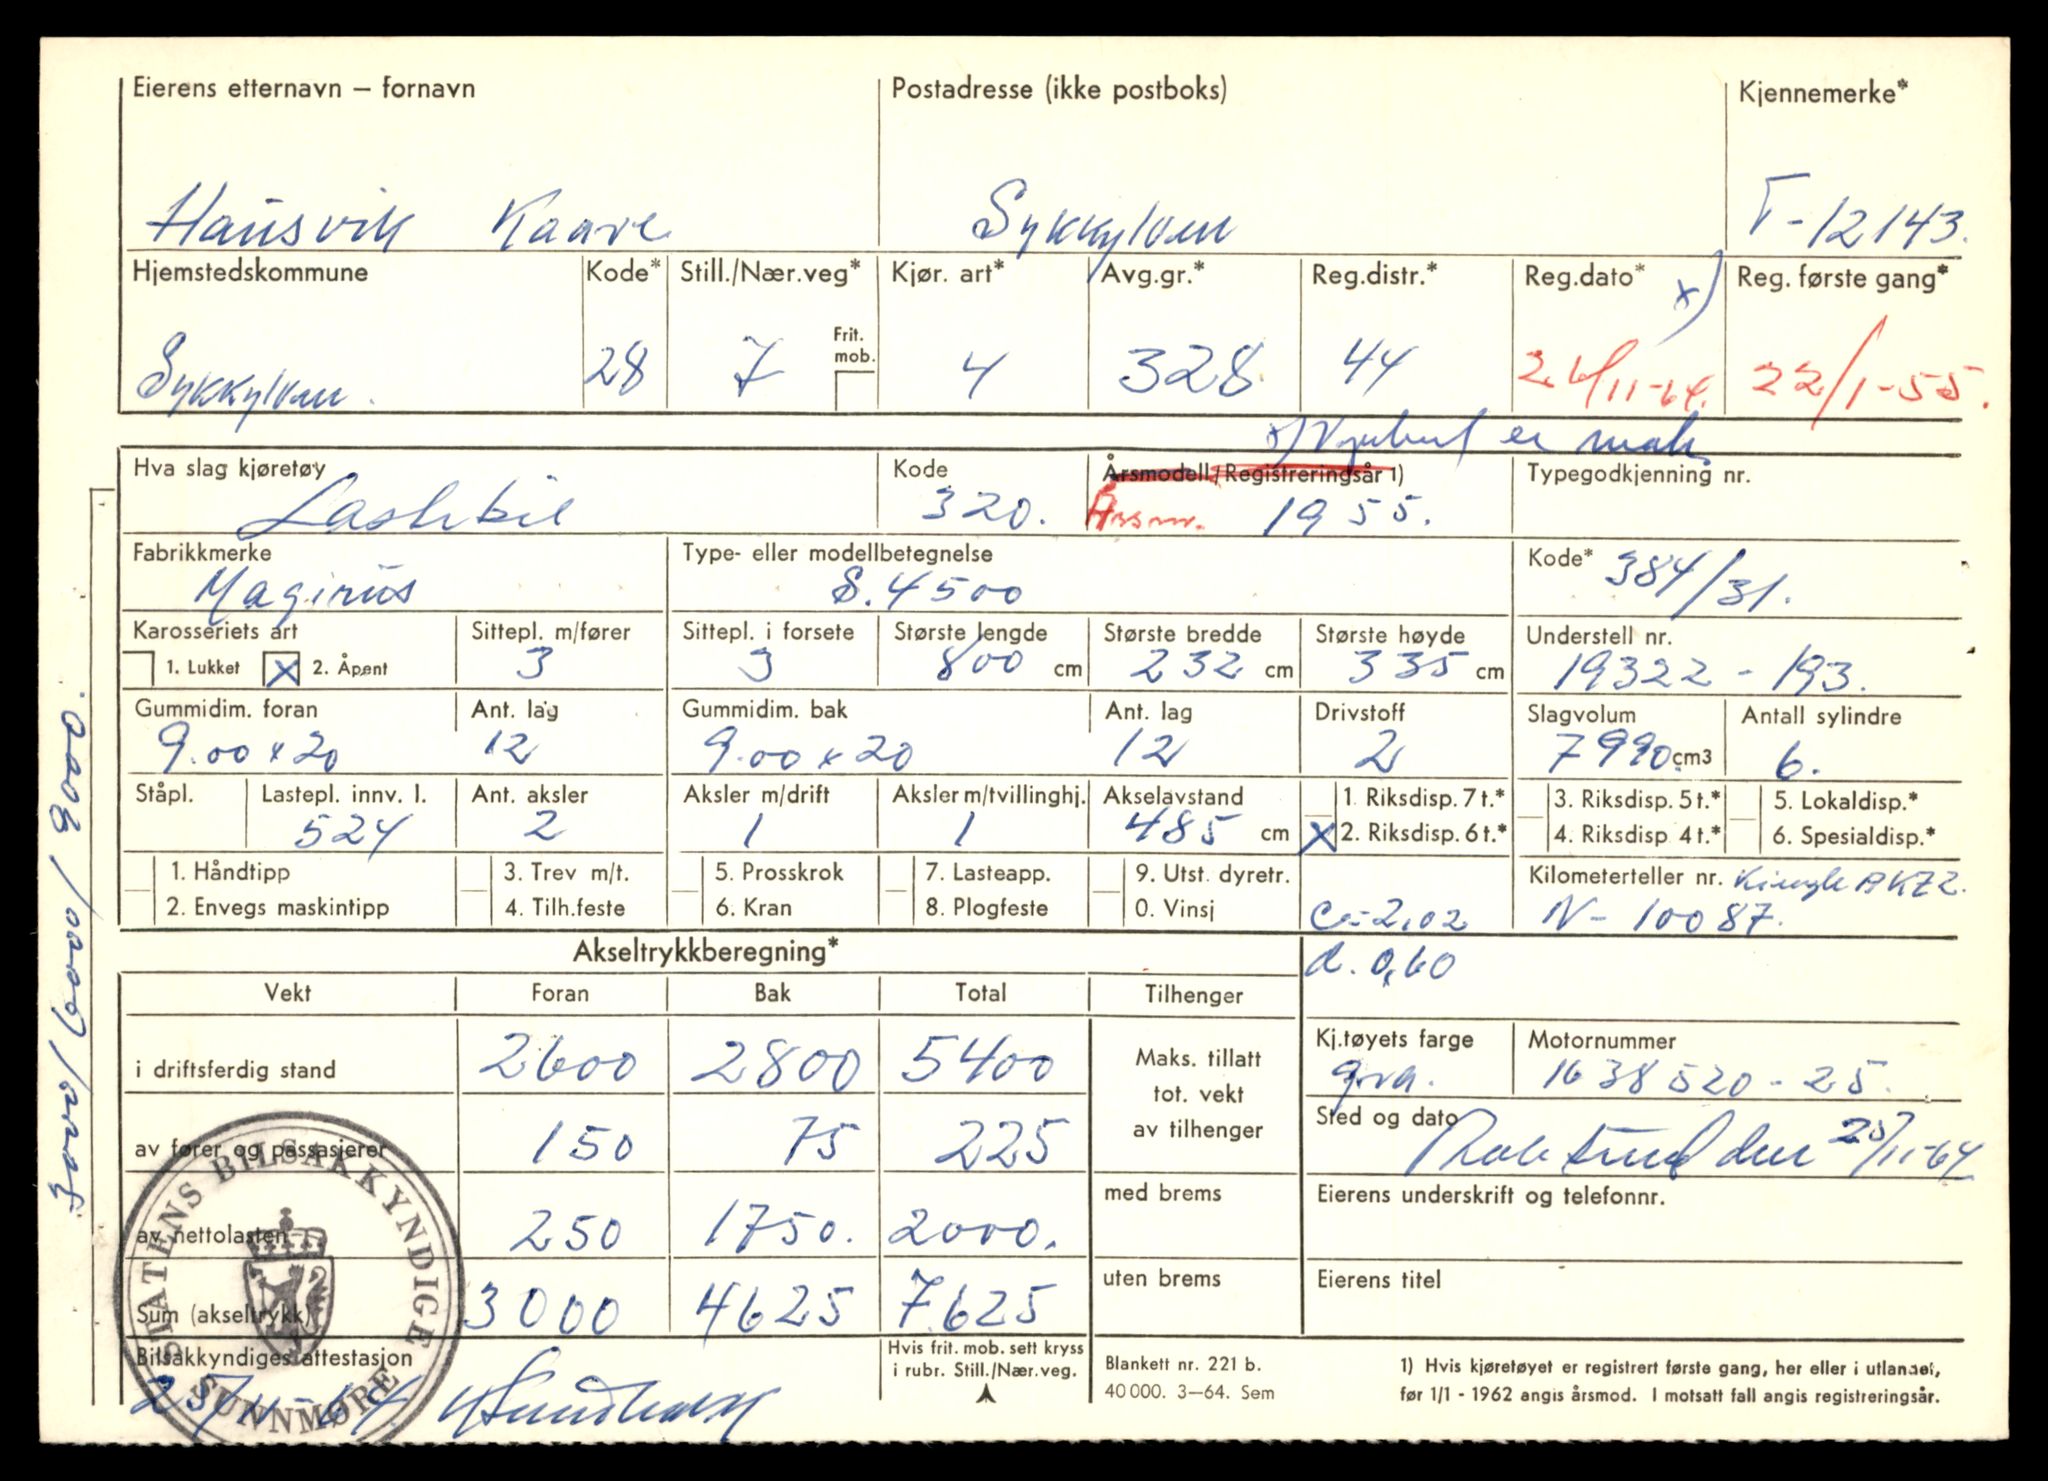 Eierens etternavn – fornavn Postadresse (ikke postboks) Kjennemerke*
Hausvik Kaare Sykkylven T-12143.
Hjemstedskommune Kode* Still./Nær.veg* Kjør. art* Avg.gr.* Reg.distr.* Reg.dato* x) Reg. første gang*
Frit. mob.
Sykkylven. 28 7 4 328 44 24/11-64. 22/1-55.
x) er
Hva slag kjøretøy Kode Årsmodell/Registreringsår 1) Typegodkjenning nr.
Lastebil 320. Årsm. 1955.
Fabrikkmerke Type- eller modellbetegnelse Kode*
Magirus S.4500 384/31.
Karosseriets art Sittepl. m/fører Sittepl. i forsete Største lengde Største bredde Største høyde Understell nr.
1. Lukket X 2. Åpent 3 3 800 cm 232 cm 335 cm 19322-193.
Gummidim. foran Ant. lag Gummidim. bak Ant. lag Drivstoff Slagvolum Antall sylindre
9.00x20 12 9.00x20 12 2 7990 cm3 6.
Ståpl. Lastepl. innv. l. Ant. aksler Aksler m/drift Aksler m/tvillinghj. Akselavstand 1. Riksdisp. 7 t.* 3. Riksdisp. 5 t.* 5. Lokaldisp.*
524 2 1 1 485 cm X 2. Riksdisp. 6 t.* 4. Riksdisp 4 t.* 6. Spesialdisp.*
1. Håndtipp 3. Trev m/t. 5. Prosskrok 7. Lasteapp. 9. Utst. dyretr. Kilometerteller nr. Kienzle
2. Envegs maskintipp 4. Tilh.feste 6. Kran 8. Plogfeste 0. Vinsj c=2,02 N-10087.
Akseltrykkberegning* d. 0,60
Vekt Foran Bak Total Tilhenger
i driftsferdig stand 2600 2800 5400 Maks. tillatt tot. vekt av tilhenger
Kj.tøyets farge Motornummer
grå. 1638520-25.
av fører og passasjerer 150 75 225
Sted og dato
den 25/11-64
av nettolasten 250 1750. 2000. med brems
Eierens underskrift og telefonnr.
Sum (akseltrykk) 3000 4625 7.625 uten brems
Eierens titel
Bilsakkyndiges attestasjon
25/11-64
Hvis frit. mob. sett kryss
i rubr. Still./Nær.veg.
Blankett nr. 221 b.
40 000. 3–64. Sem
1) Hvis kjøretøyet er registrert første gang, her eller i utlandet,
før 1/1 - 1962 angis årsmod. I motsatt fall angis registreringsår.
STATENS BILSAKKYNDIGE
SUNNMØRE